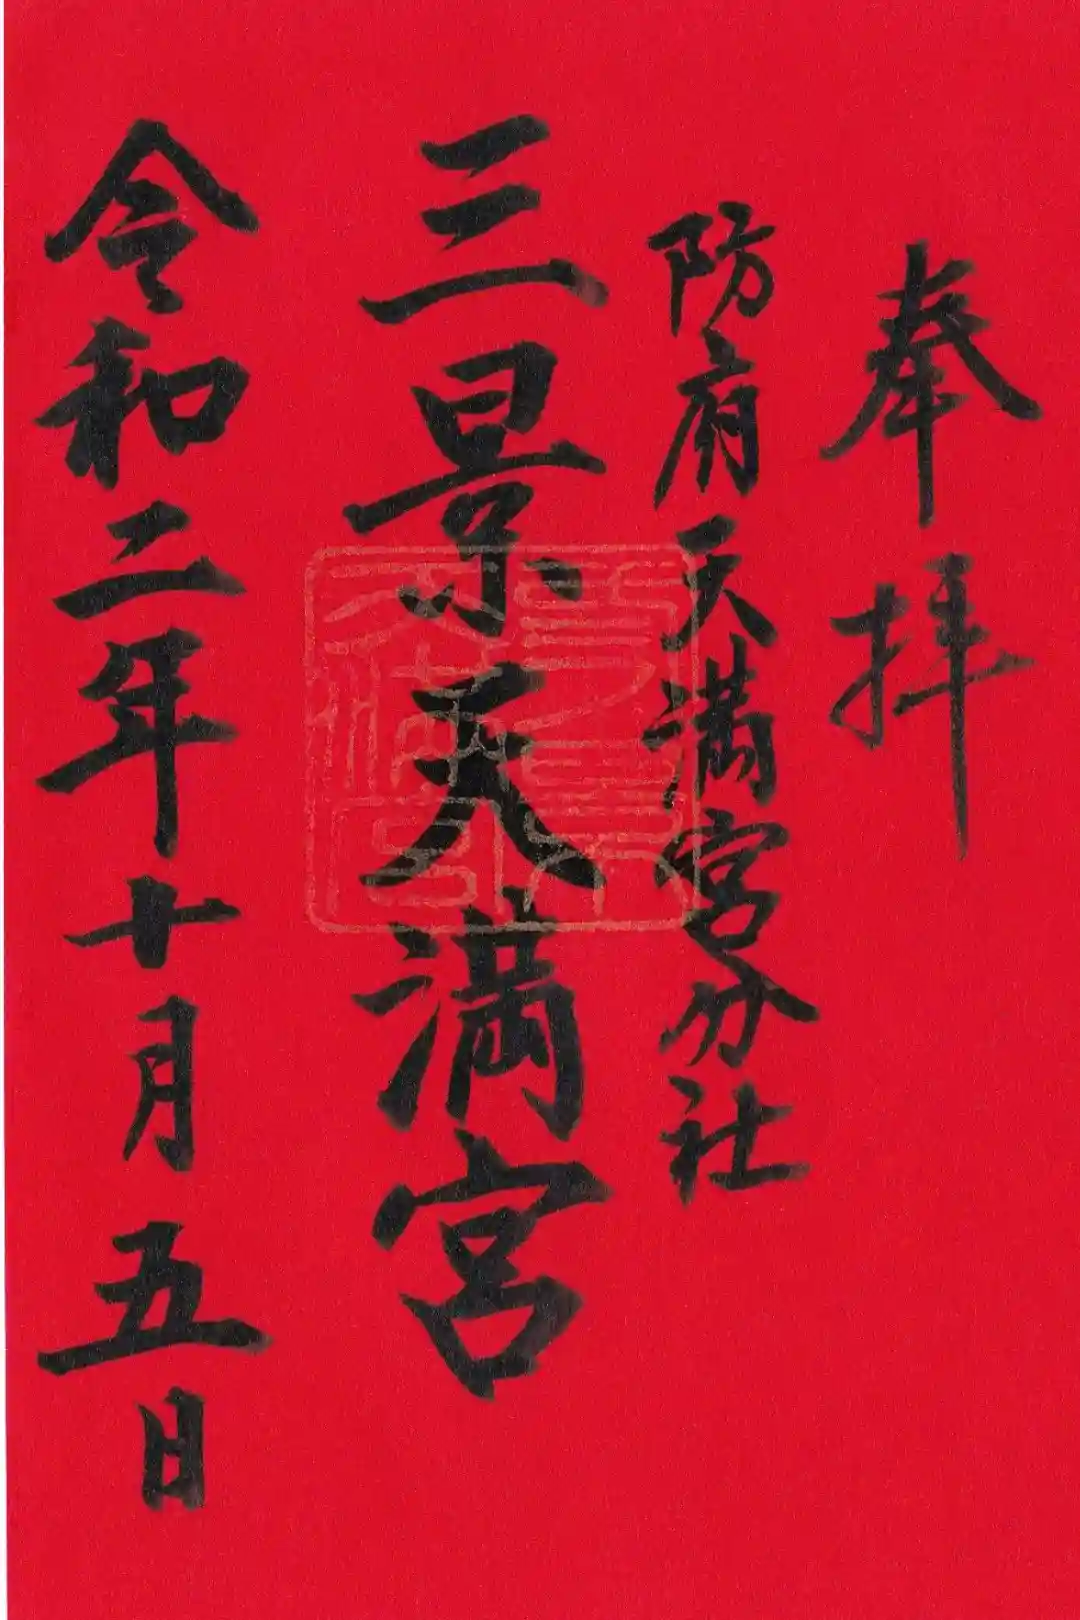 奉拝
防府天満宮分社
三景天満宮
令和二年十月五日